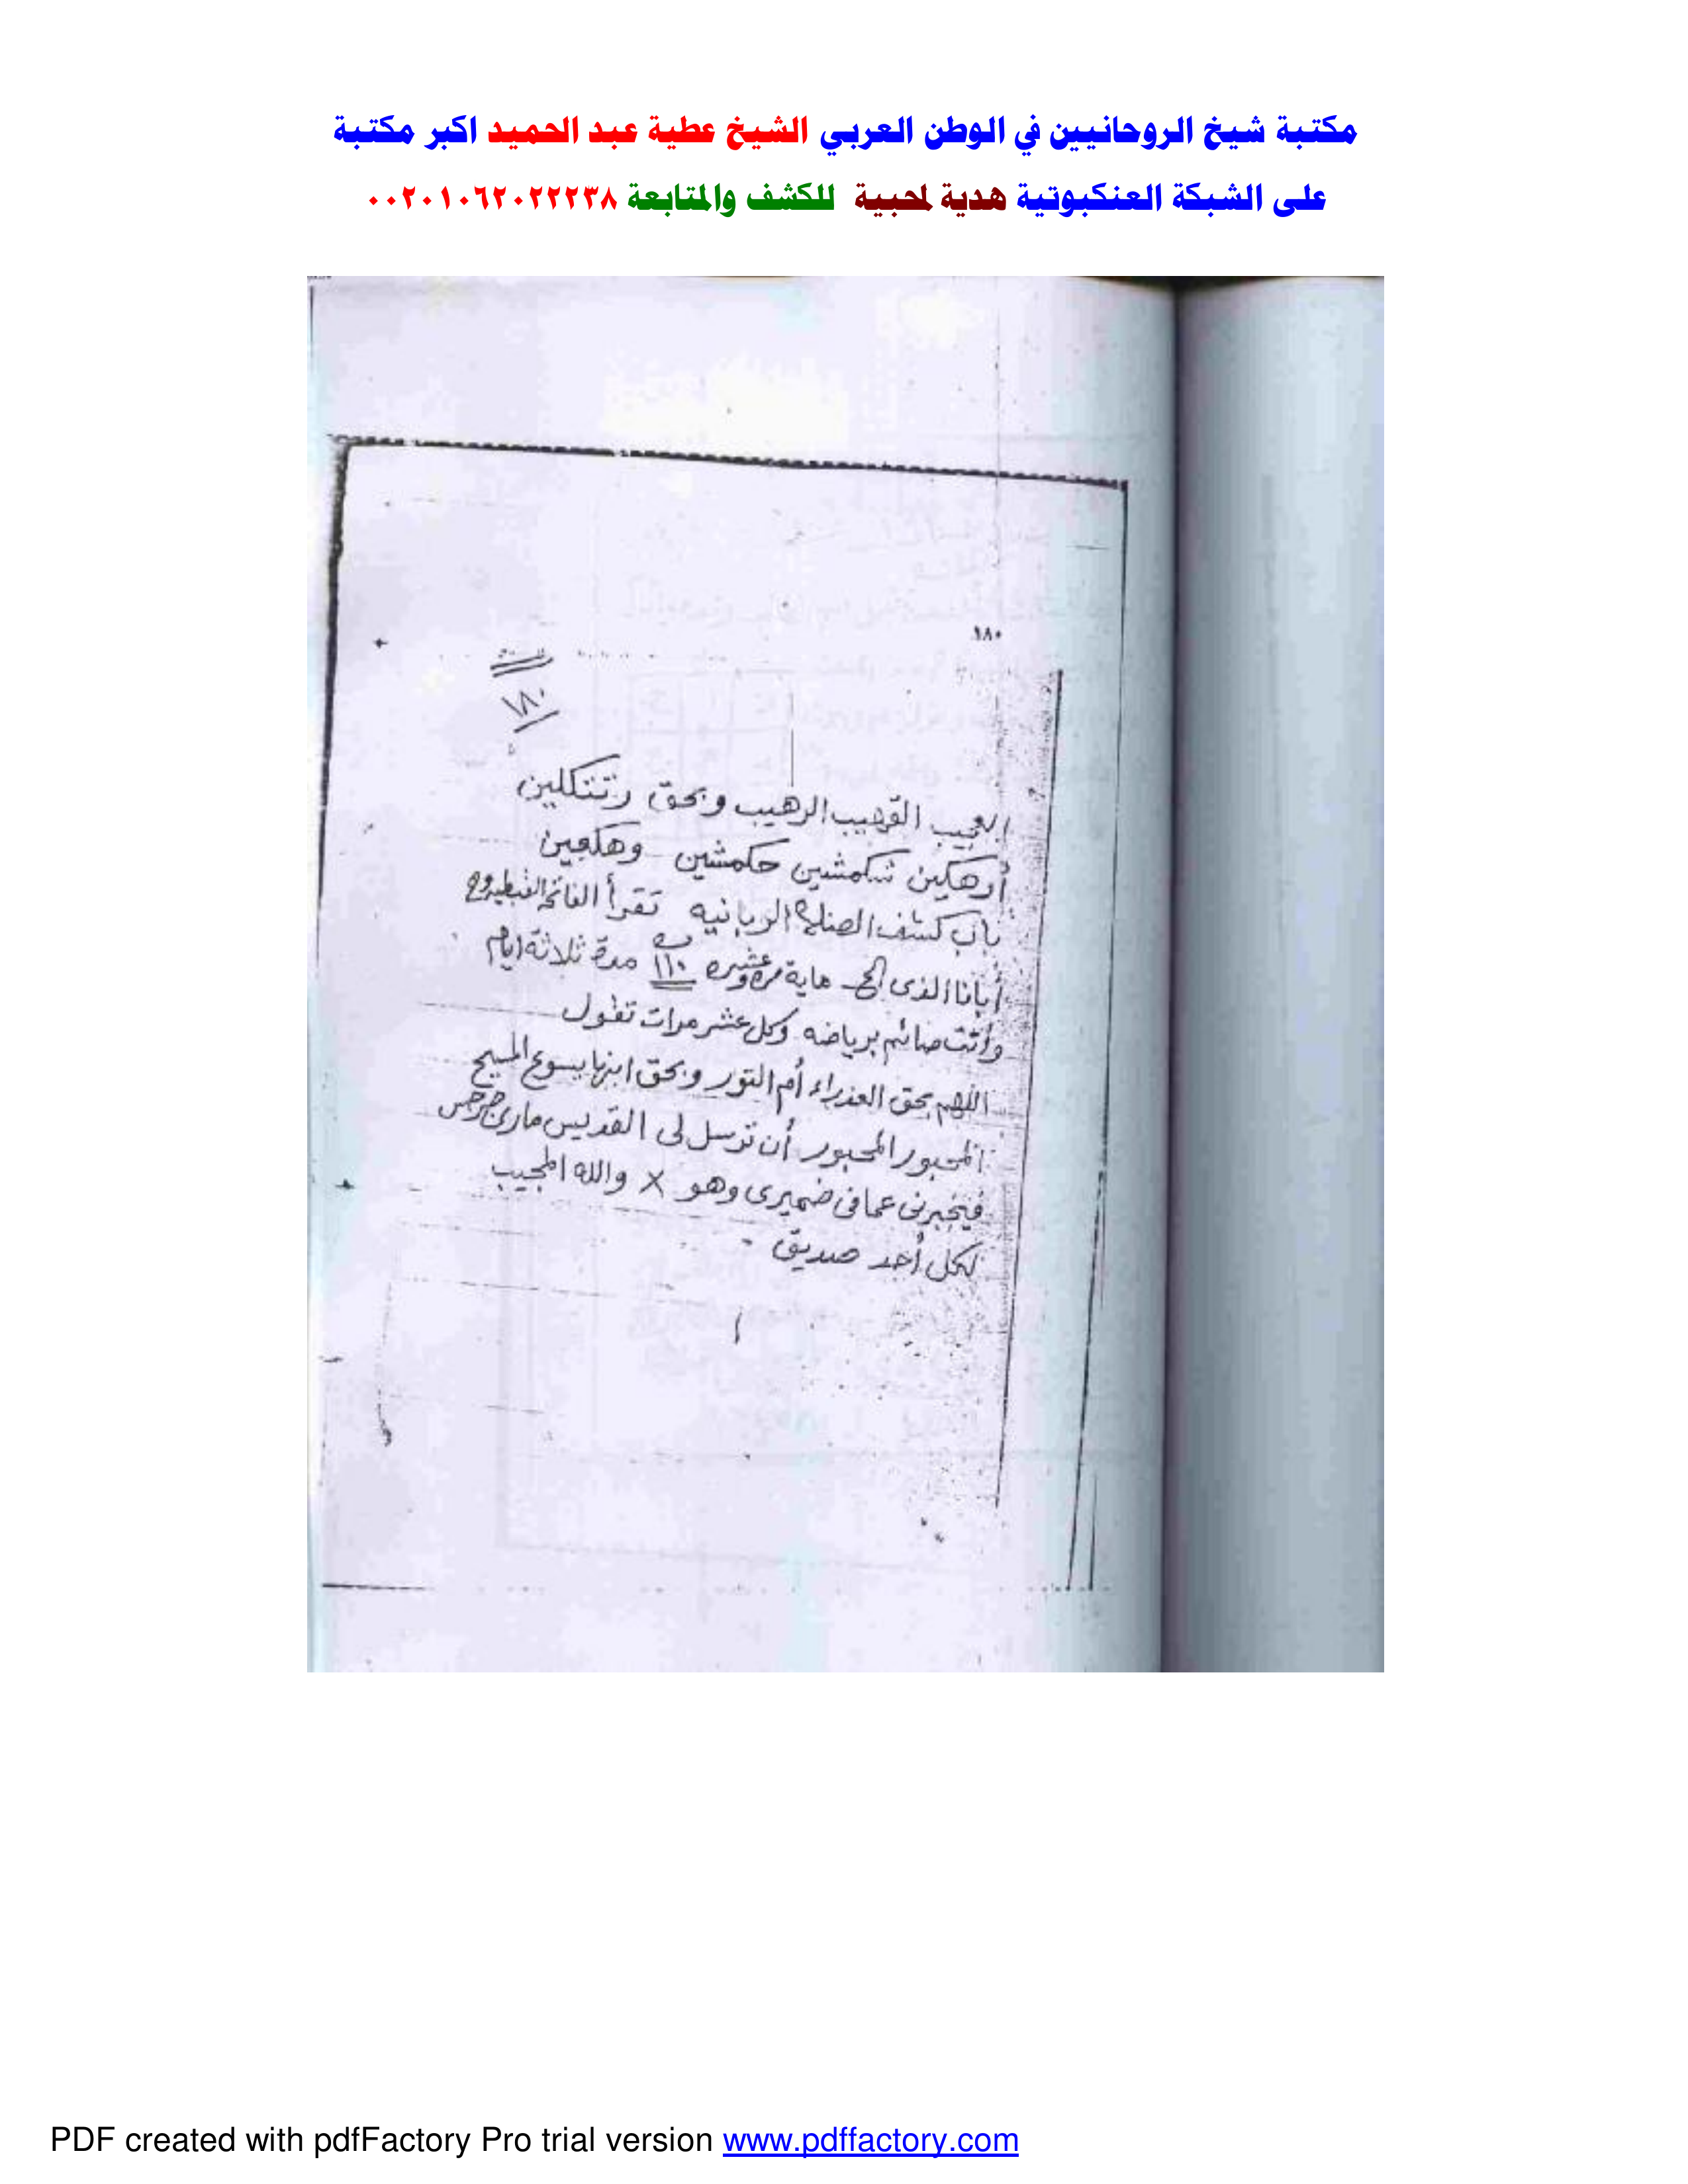 مكتبة شيخ الروحانيين في الوطن العربي الشيخ عطية عبد الحميد اكبر مكتبة
على الشبكة العنكبوتية هدية لمحبية للكشف والمتابعة ٠٠٢٠١٠٦٢٠٢٢٢٣٨
١٨٠
١٨٠
العجيب الرهيب وبحق
أرهكين شكمشين حكمشين وهكجين
باب كشف الربانيه تقرأ الفاتحه
أبانا الذى الخ ماية مرة وعشره ١١٠ مدة ثلاثة ايام
وانت صائم برياضه وكل عشر مرات تقول
اللهم بحق العذراء أم النور وبحق ابنها يسوع المسيح
أن ترسل لى القديس مارى جرجس
فيخبرنى عما فى ضميرى وهو x والله المجيب
لكل أحد صديق
PDF created with pdfFactory Pro trial version www.pdffactory.com